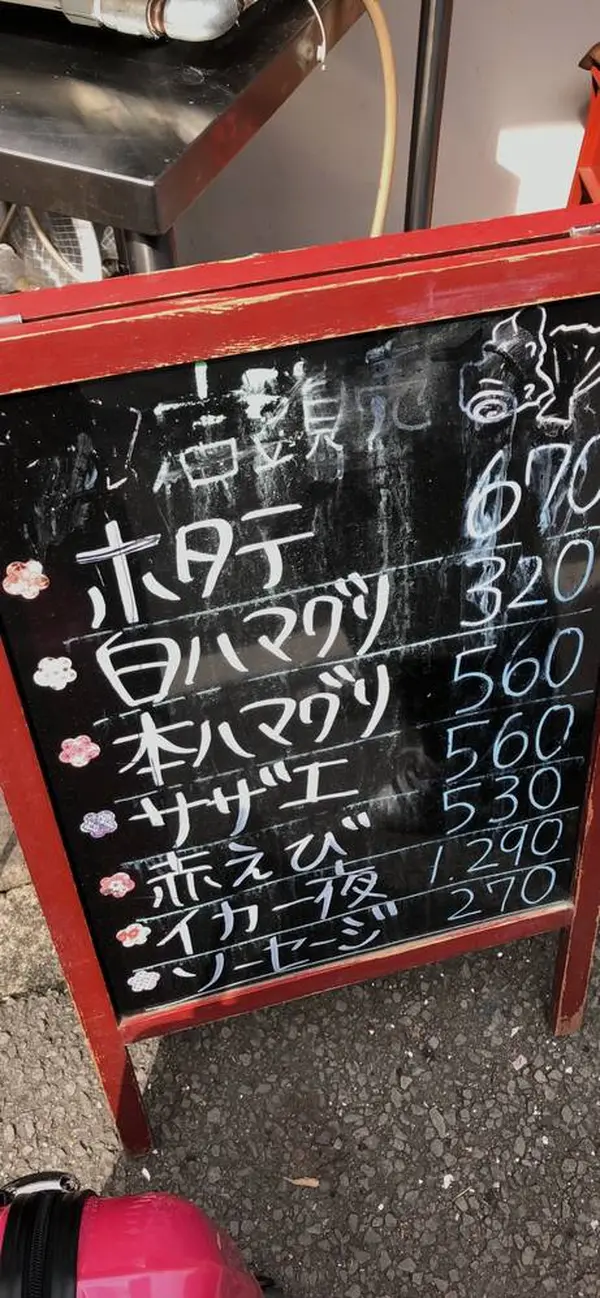 店頭売
ホタテ 670
白ハマグリ 320
本ハマグリ 560
サザエ 560
赤えび 530
イカ一夜 1.290
ソーセージ 270